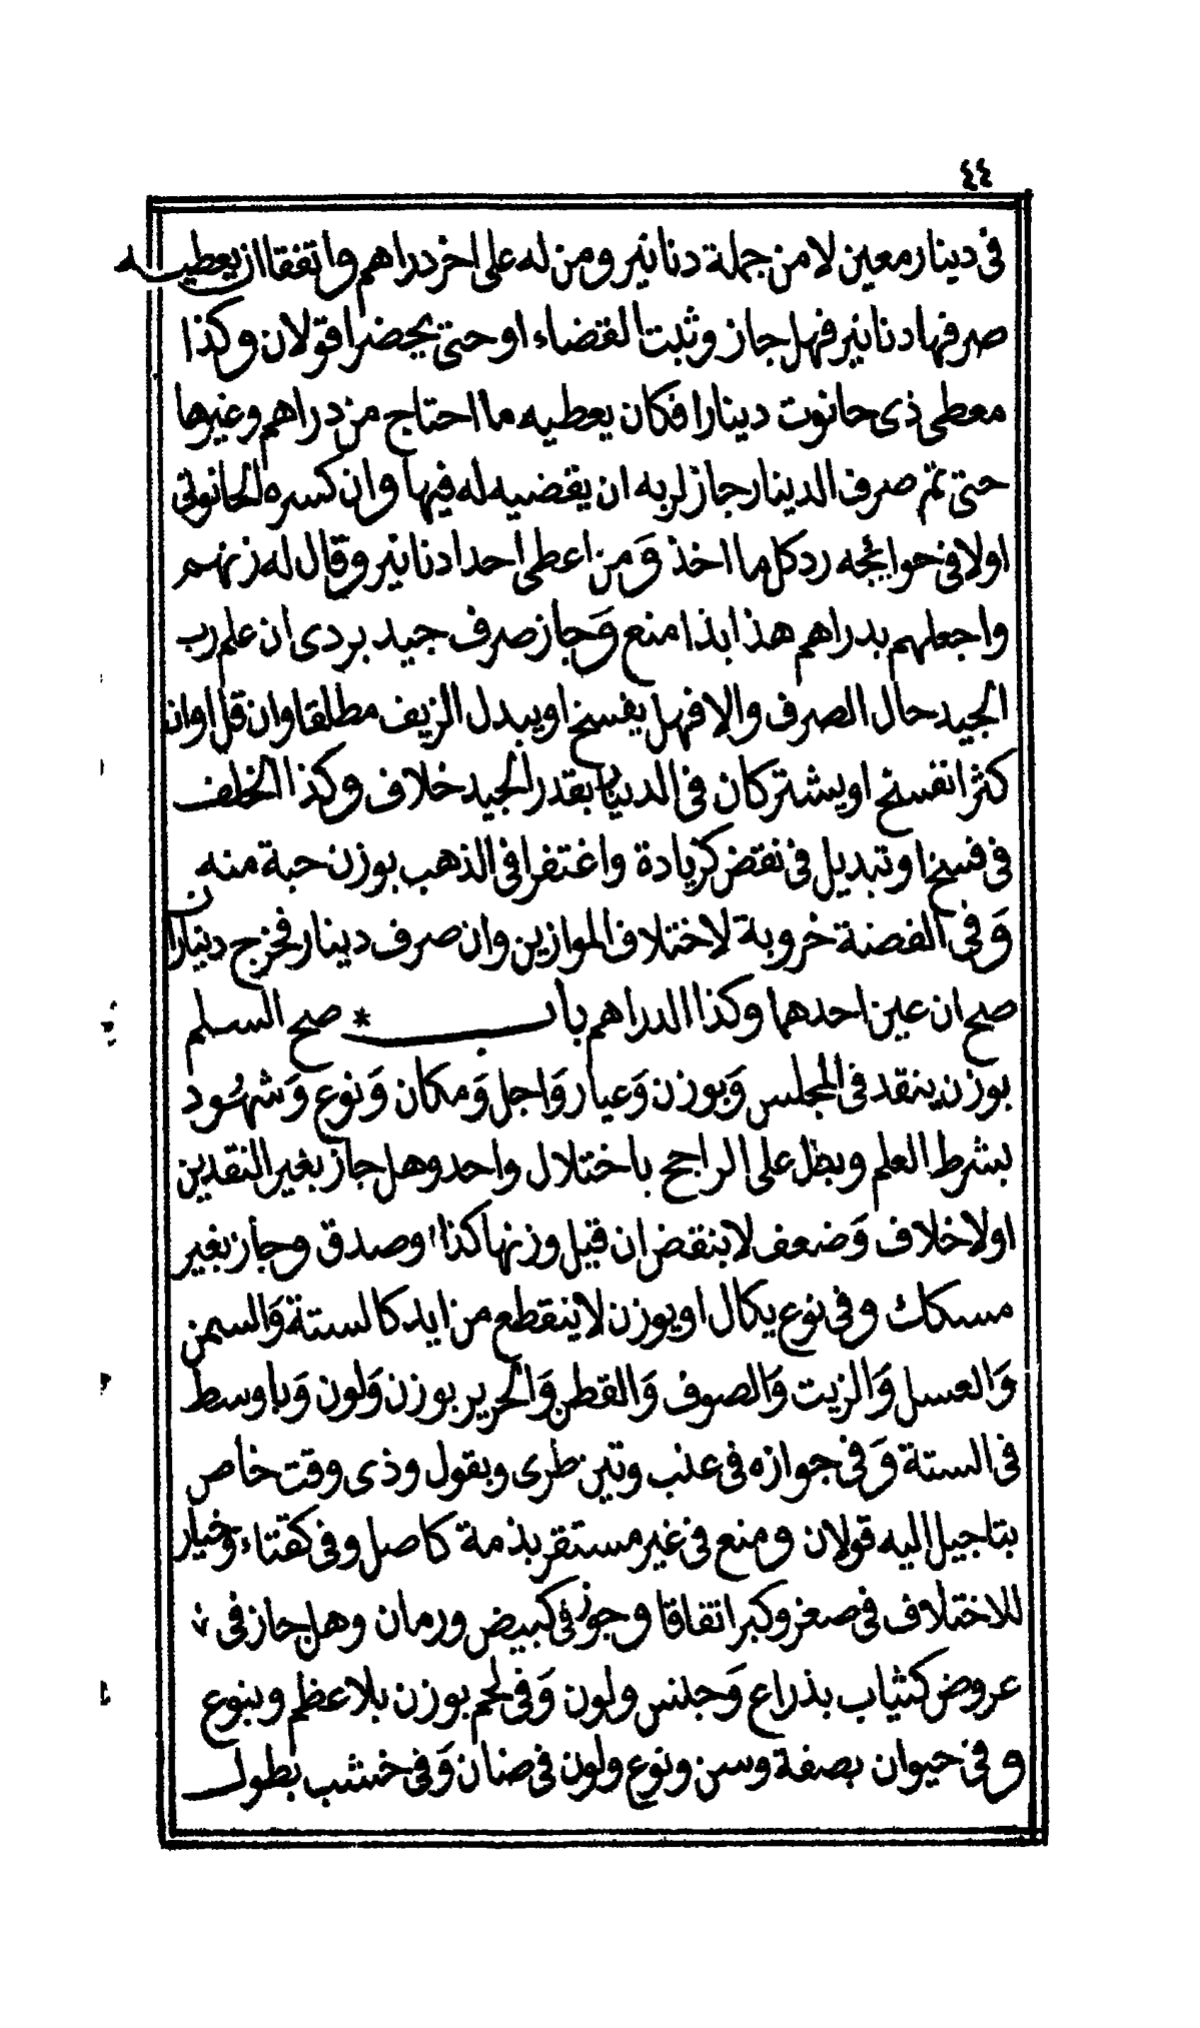 ٤٤
فى دينار معين لا من جملة دنانير ومن له على اخر دراهم واتفقا ان يعطيه
صرفها دنانير فهل جاز وثبت القضاء او حتى يحضرا قولان وكذا
معطى ذى حانوت دينارا فكان يعطيه ما احتاج من دراهم وغيرها
حتى تم صرف الدينار جاز لربه ان يقضيه له فيها وان كسره الحانوتى
اولا فى حوايجه رد كل ما اخذ وَمن اعطى احدا دنانير وقال له زنهم
واجعلهم بدراهم هذا بذا منع وَجاز صرف جيد بردى ان علم رب
الجيد حال الصرف والا فهل يفسخ او يبدل الزيف مطلقا وان قل او ان
كثر انفسخ او يشتركان فى الدينار بقدر الجيد خلاف وكذا الخلف
فى فسخ او تبديل فى نقض كزيادة واغتفرا فى الذهب بوزن حبة منه
وَفى الفضة خروبة لاختلاف الموازين وان صرف دينار فخرج دينارا ن
صح ان عين احدهما وكذا الدراهم باب * صح السلم
بوزن ينقد فى المجلس وَبوزن وَعيار وَاجل وَمكان وَنوع وَشهُود
بشرط العلم وبطل على الراجح باختلال واحد وهل جاز بغير النقدين
اولا خلاف وَضعف لا بنقض ان قيل وزنها كذا وصدق وجاز بغير
مسكك وفى نوع يكال او يوزن لا ينقطع من ايد كالستة وَالسمن
وَالعسل وَالزيت وَالصوف وَالقطن وَالحرير بوزن وَلون وَباوسط
فى الستة وَفى جوازه فى عنب وتين طرى وبقول وذى وقت خاص
بتاجيل اليه قولان ومنع فى غير مستقر بذمة كاصل وفى كقثاء وَخيار
للاختلاف فى صغر وكبر اتفاقا وجوز فى كبيض ورمان وهل جاز فى
عروض كثياب بذراع وَجنس ولون وَفى لحم بوزن بلا عظم وبنوع
وفى حيوان بصفة وسن ونوع ولون فى ضان وَفى خشب بطول